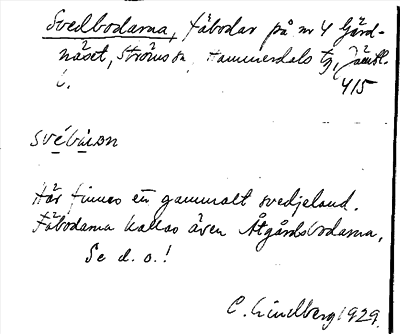 Svedbodarna, fäbodar på nr 4 Gård-
näset, Ströms sn, Hammerdals tg, Jämtl.
l. 415
svébùon
Här finnes en gammalt svedjeland.
Fäbodarna kallas även Åtgårdsbodarna.
Se d. o.!
C. Lindberg 1929.